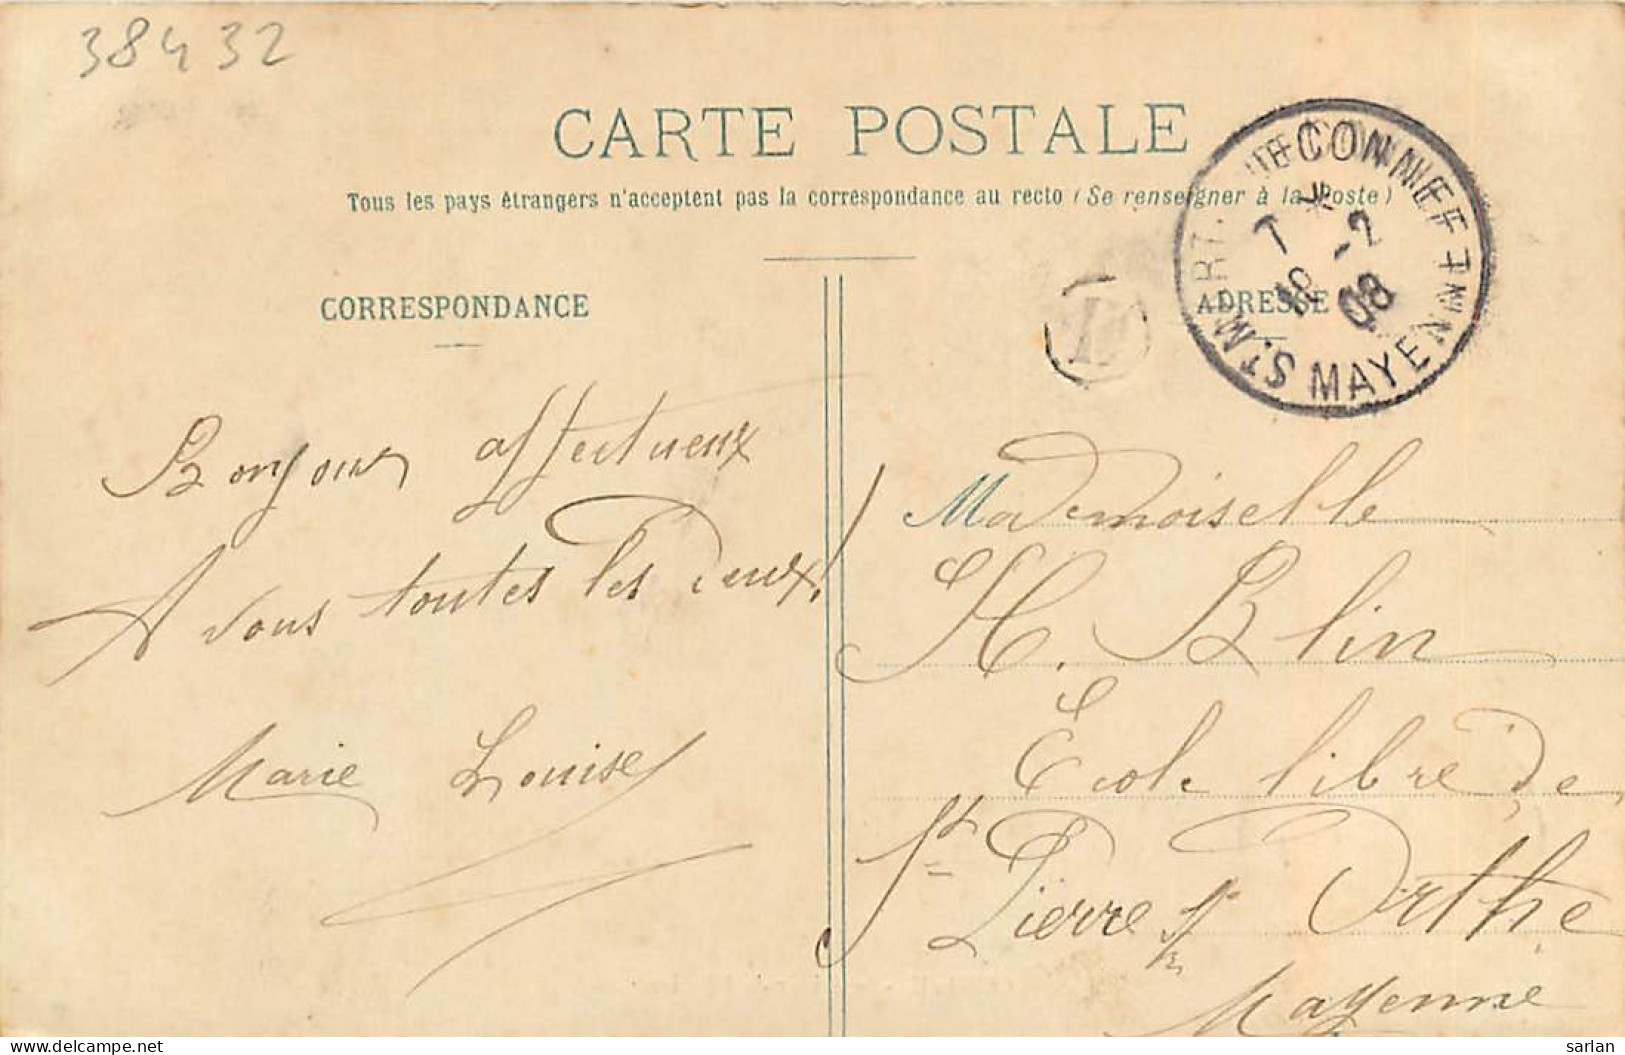 38432
CARTE POSTALE
Tous les pays étrangers n'acceptent pas la correspondance au recto (Se renseigner à la Poste)
CORRESPONDANCE
ADRESSE
7 * -2
18 08
MAYENNE
E
Bonjour affectueux
A vous toutes les Deux!
Marie Louise
Mademoiselle
H. Blin
Ecole libre de
St Pierre s/ Orthe
Mayenne
delcampe.net
sarlan